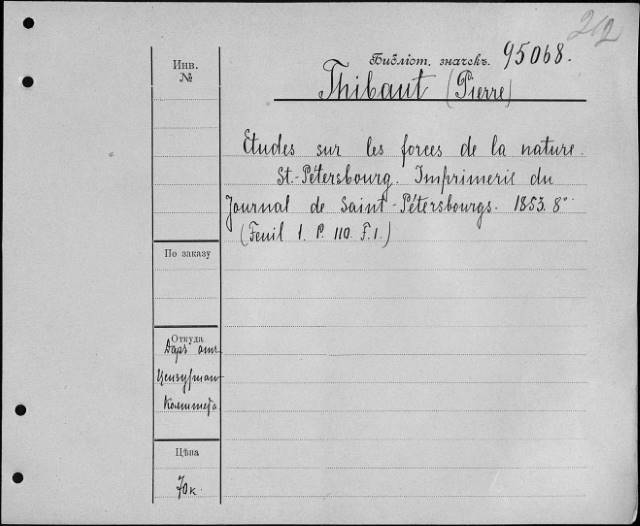 212
Библіот. значекъ. 95068.
Thibaut (Pierre)
Инв.
№
Etudes sur les forces de la nature.
St.-Pétersbourg. Imprimerie du
Journal de Saint-Pétersbourgs. 1853. 8°
(Feuil 1. P. 110. F.1.)
По заказу
Откуда
Даръ от
Цензурнаго
Комитета
Цѣна
70 к.